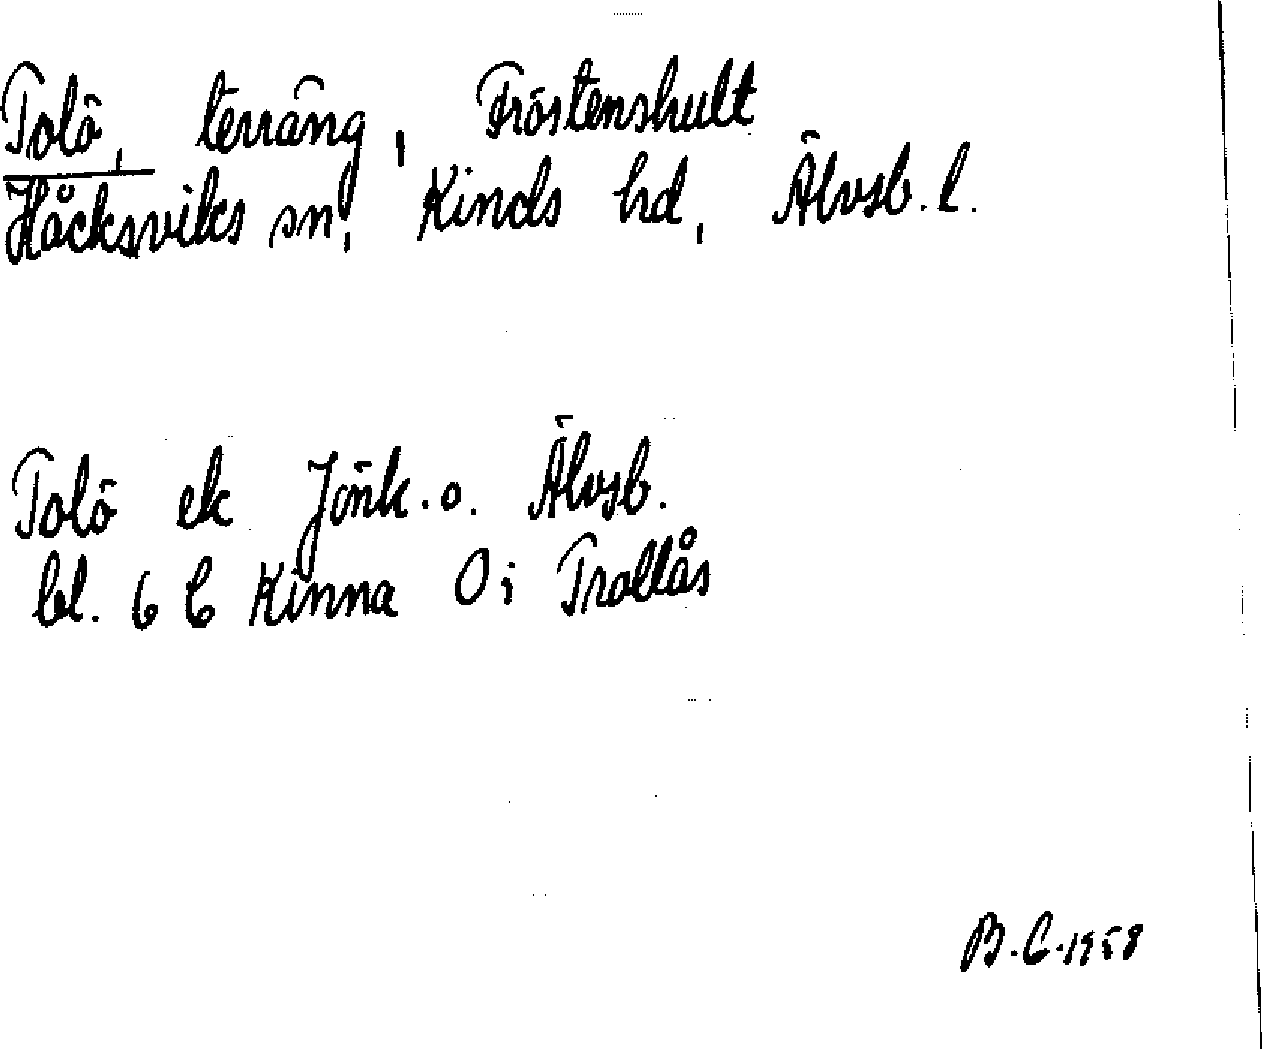 Tolö, terräng, Fröstenshult
Håcksviks sn, Kinds hd, Älvsb. l.
Tolö ek Jönk. o. Älvsb.
bl. 6 C Kinna Oi Trollås
B.C. 1958